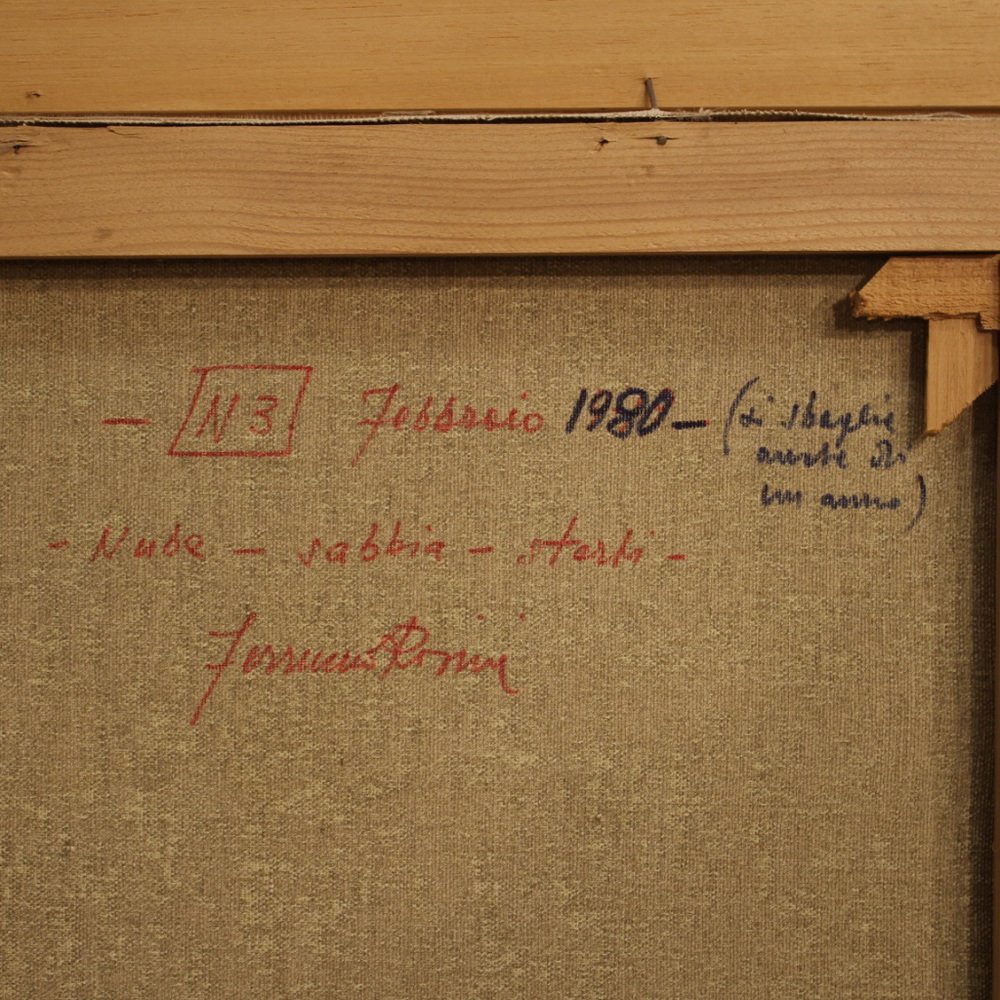 — N 3 Febbraio 1980 — (si sbaglia
anche di
un anno)
- Nube — sabbia — sterpi -
Ferruccio Rosini